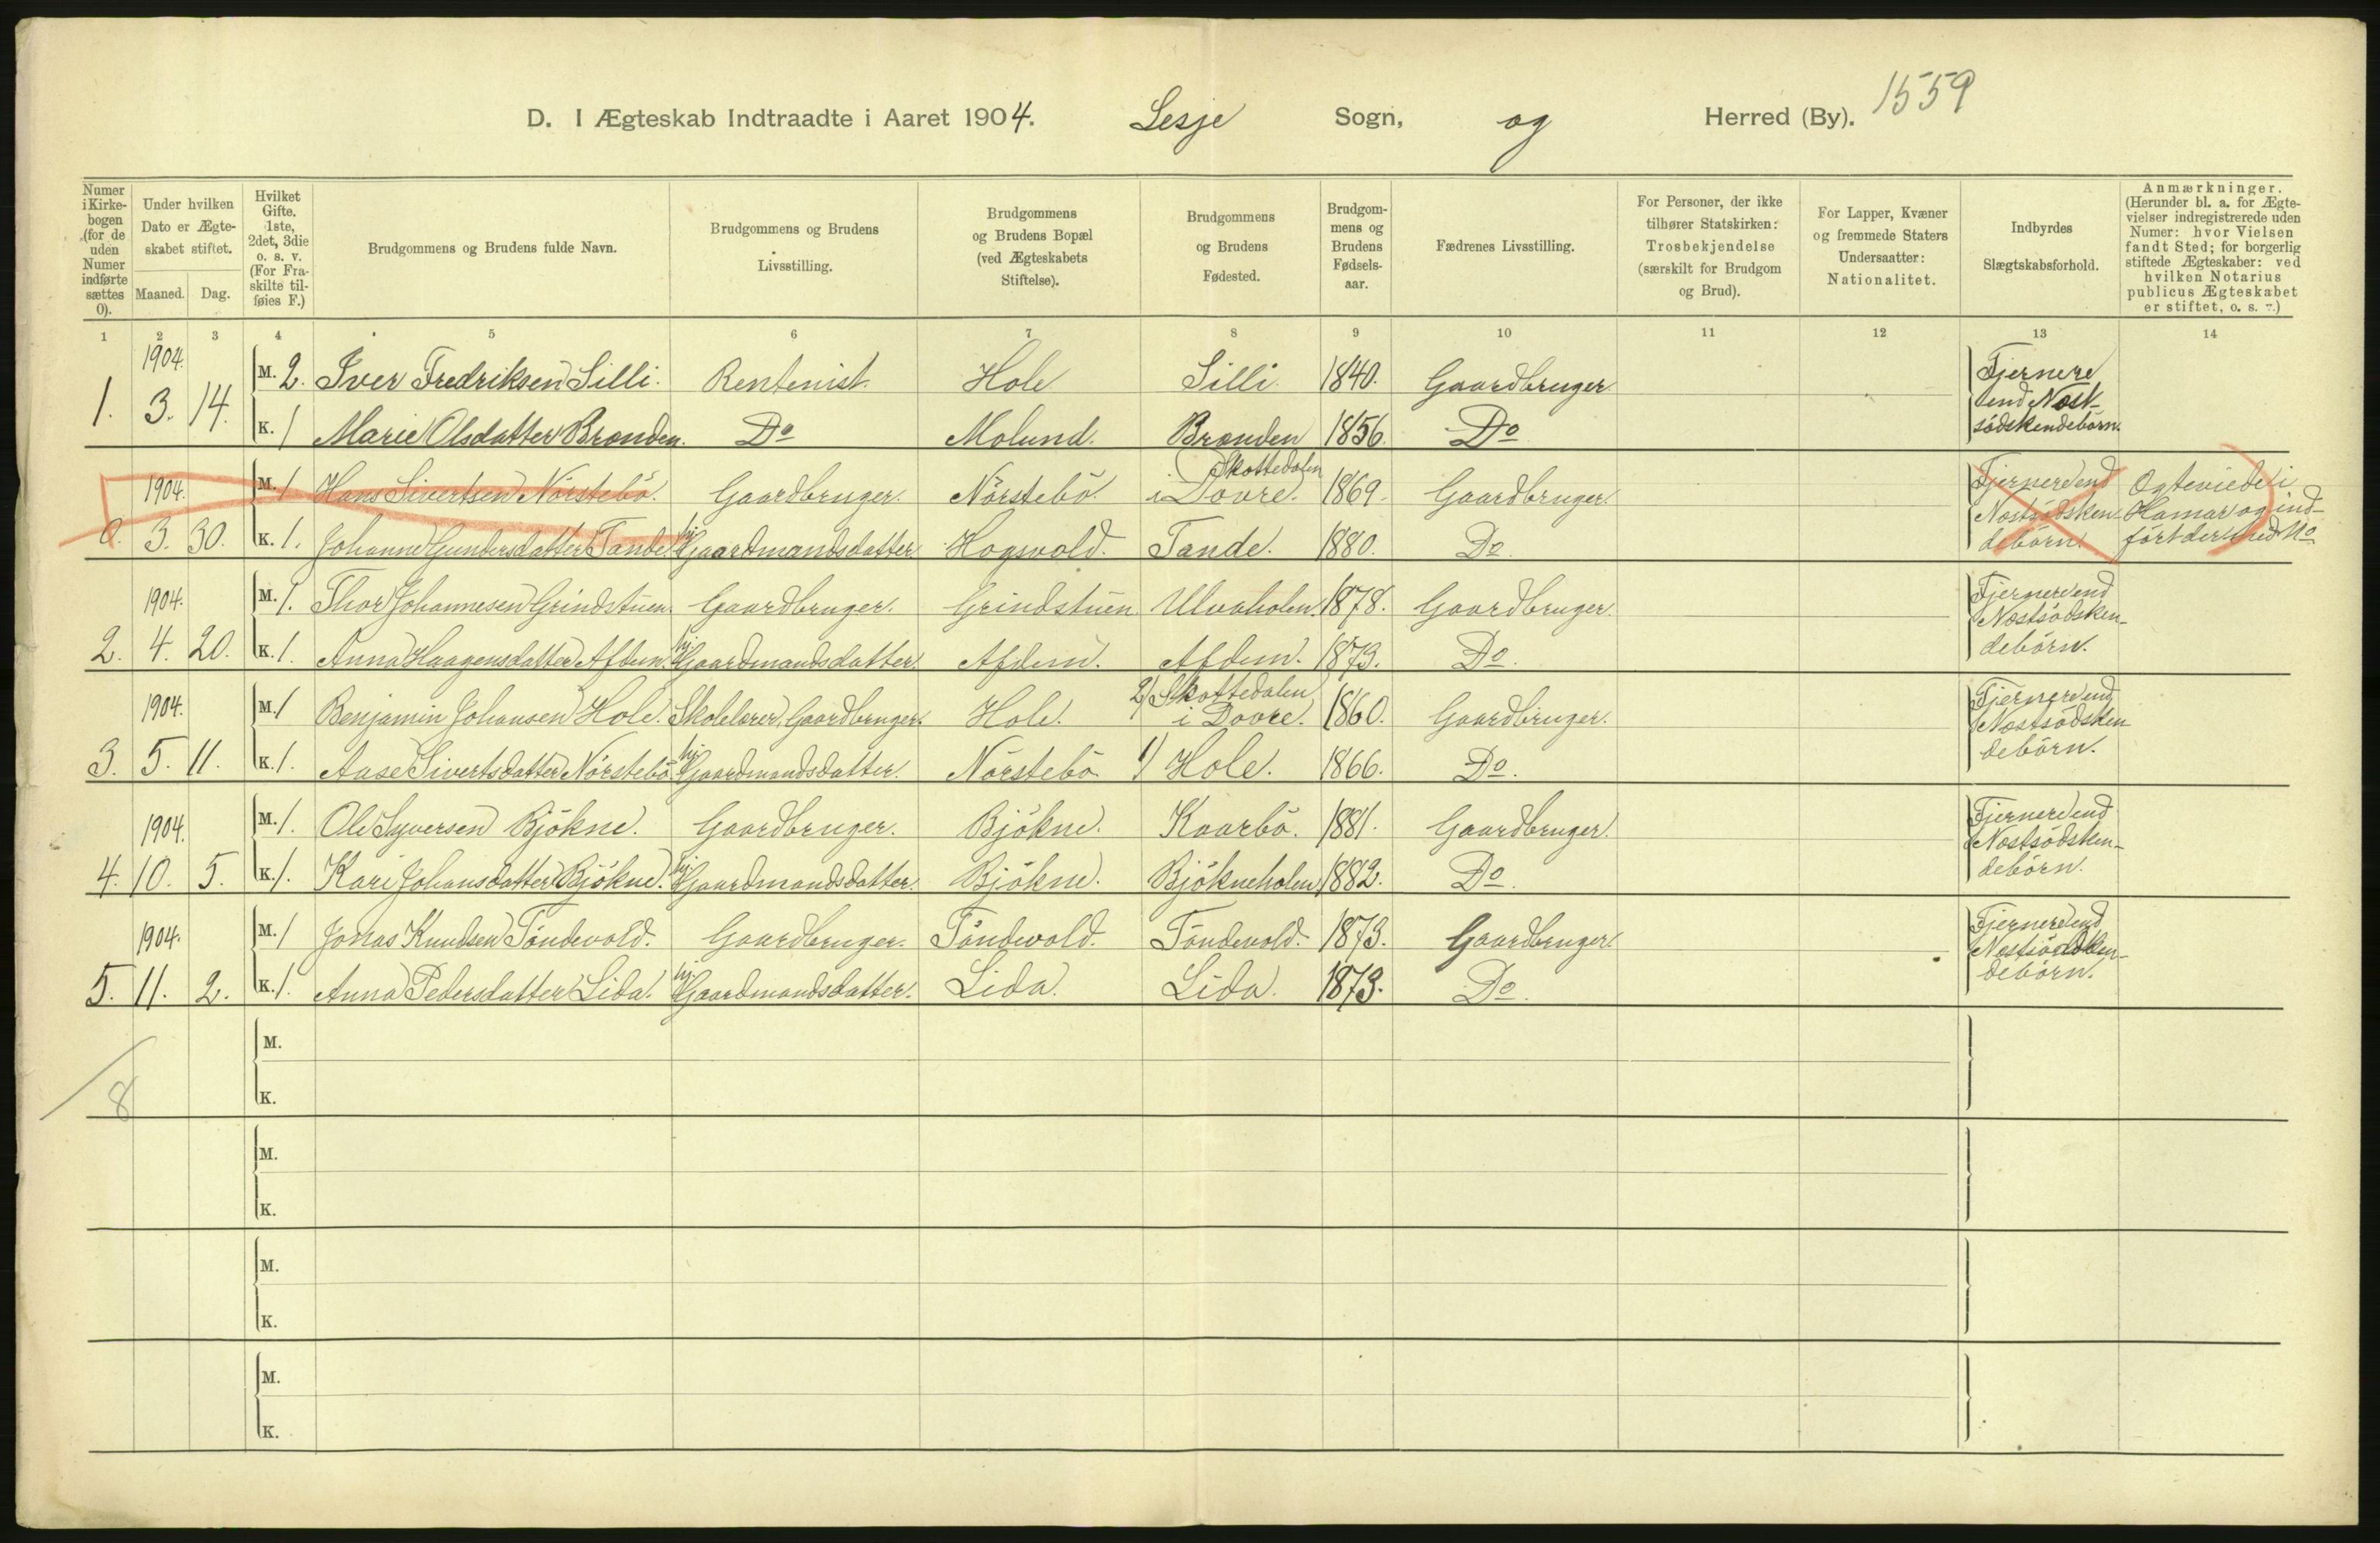 1559
D. I Ægteskab Indtraadte i Aaret 1904. Lesje Sogn, og Herred (By).
Numer i Kirke-bogen (for de uden Numer indførte sættes 0).
Under hvilken Dato er Ægte-skabet stiftet.
Maaned. Dag.
Hvilket Gifte. 1ste, 2det, 3die o. s. v. (For Fra-skilte til-føies F.)
Brudgommens og Brudens fulde Navn.
Brudgommens og Brudens Livsstilling.
Brudgommens og Brudens Bopæl (ved Ægteskabets Stiftelse).
Brudgommens og Brudens Fødested.
Brudgom-mens og Brudens Fødsels-aar.
Fædrenes Livsstilling.
For Personer, der ikke tilhører Statskirken: Trosbekjendelse (særskilt for Brudgom og Brud).
For Lapper, Kvæner og fremmede Staters Undersaatter: Nationalitet.
Indbyrdes Slægtskabsforhold.
Anmærkninger. (Herunder bl. a. for Ægte-vielser indregistrerede uden Numer: hvor Vielsen fandt Sted; for borgerlig stiftede Ægteskaber: ved hvilken Notarius publicus Ægteskabet er stiftet, o. s. v.)
1 2 3 4 5 6 7 8 9 10 11 12 13 14
1904.
M. 2. Iver Fredriksen Lilli. Rentenist. Hole Lilli. 1840. Gaardbruger Fjernere end Næst-södskendebörn.
1. 3. 14. K. 1 Marie Olsdatter Brænden. Do Molund. Brænden 1856. Do
1904.
M. 1 Hans Sivertsen Nörstebö. Gaardbruger. Nörstebö. Skottedalen i Dovre. 1869. Gaardbruger. Fjernere end Næstsödsken-debörn. Ægteviede i Hamar og ind-fört der med No
0. 3. 30. K. 1. Johanne Gundersdatter Tande hj. Gaardmandsdatter Hogsvold. Tande. 1880. Do.
1904.
M. 1. Thor Johannesen Grindstuen. Gaardbruger. Grindstuen Ulvaholen. 1878. Gaardbruger. Fjernere end Næstsödsken-debörn.
2. 4. 20. K. 1. Anna Haagensdatter Afdem. hj. Gaardmandsdatter. Afdem. Afdem. 1879. Do.
1904.
M. 1 Benjamin Johansen Hole. Skolelærer, Gaardbruger. Hole. 2) Skottedalen i Dovre. 1860. Gaardbruger. Fjernere end Næstsödsken debörn.
3. 5. 11. K. 1. Aase Sivertsdatter Nörstebö. hj. Gaardmandsdatter. Nörstebö. 1) Hole. 1866. Do.
1904.
M. 1. Ole Syversen Bjökne. Gaardbruger. Bjökne. Kaarbö. 1881. Gaardbruger. Fjernere end Næstsödsken-debörn.
4. 10. 5. K. 1. Kari Johansdatter Bjökne. hj. Gaardmandsdatter. Bjökne. Bjökneholen 1882. Do.
1904.
M. 1 Jonas Knudsen Töndevold. Gaardbruger. Töndevold. Töndevold. 1873. Gaardbruger. Fjernere end Næstsödsken-debörn.
5. 11. 2. K. 1. Anna Pedersdatter Lida. hj. Gaardmandsdatter. Lida. Lida. 1873. Do.
M.
8 K.
M.
K.
M.
K.
M.
K.